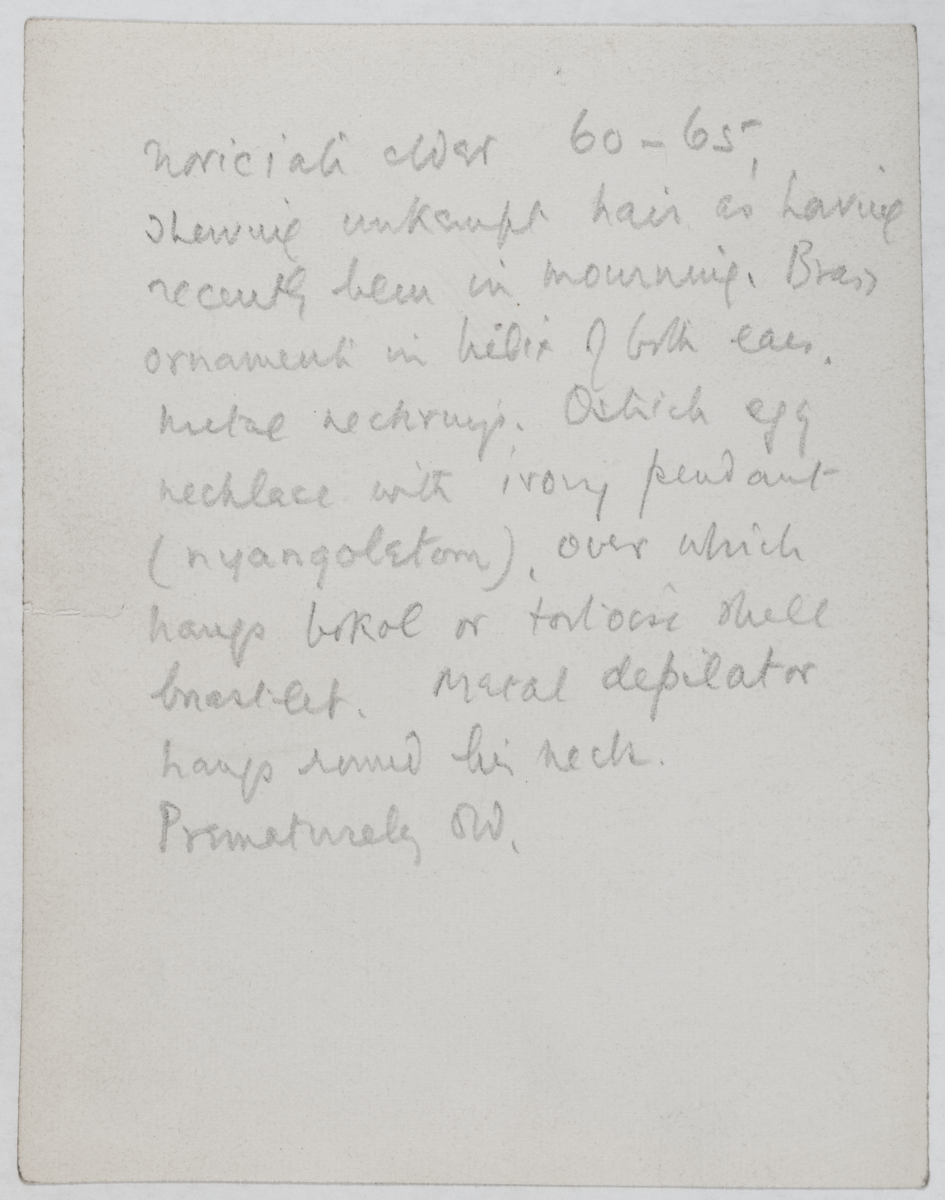 elder 60 – 65,
shewing unkempt hair as having
recently been in mourning. Brass
ornament in helix of both ears.
Metal neckrings. Ostrich egg
necklace with ivory pendant
(nyangoletom), over which
hangs bokol or tortoise shell
braselet. Metal depilator
hangs round his neck.
Prematurely old.